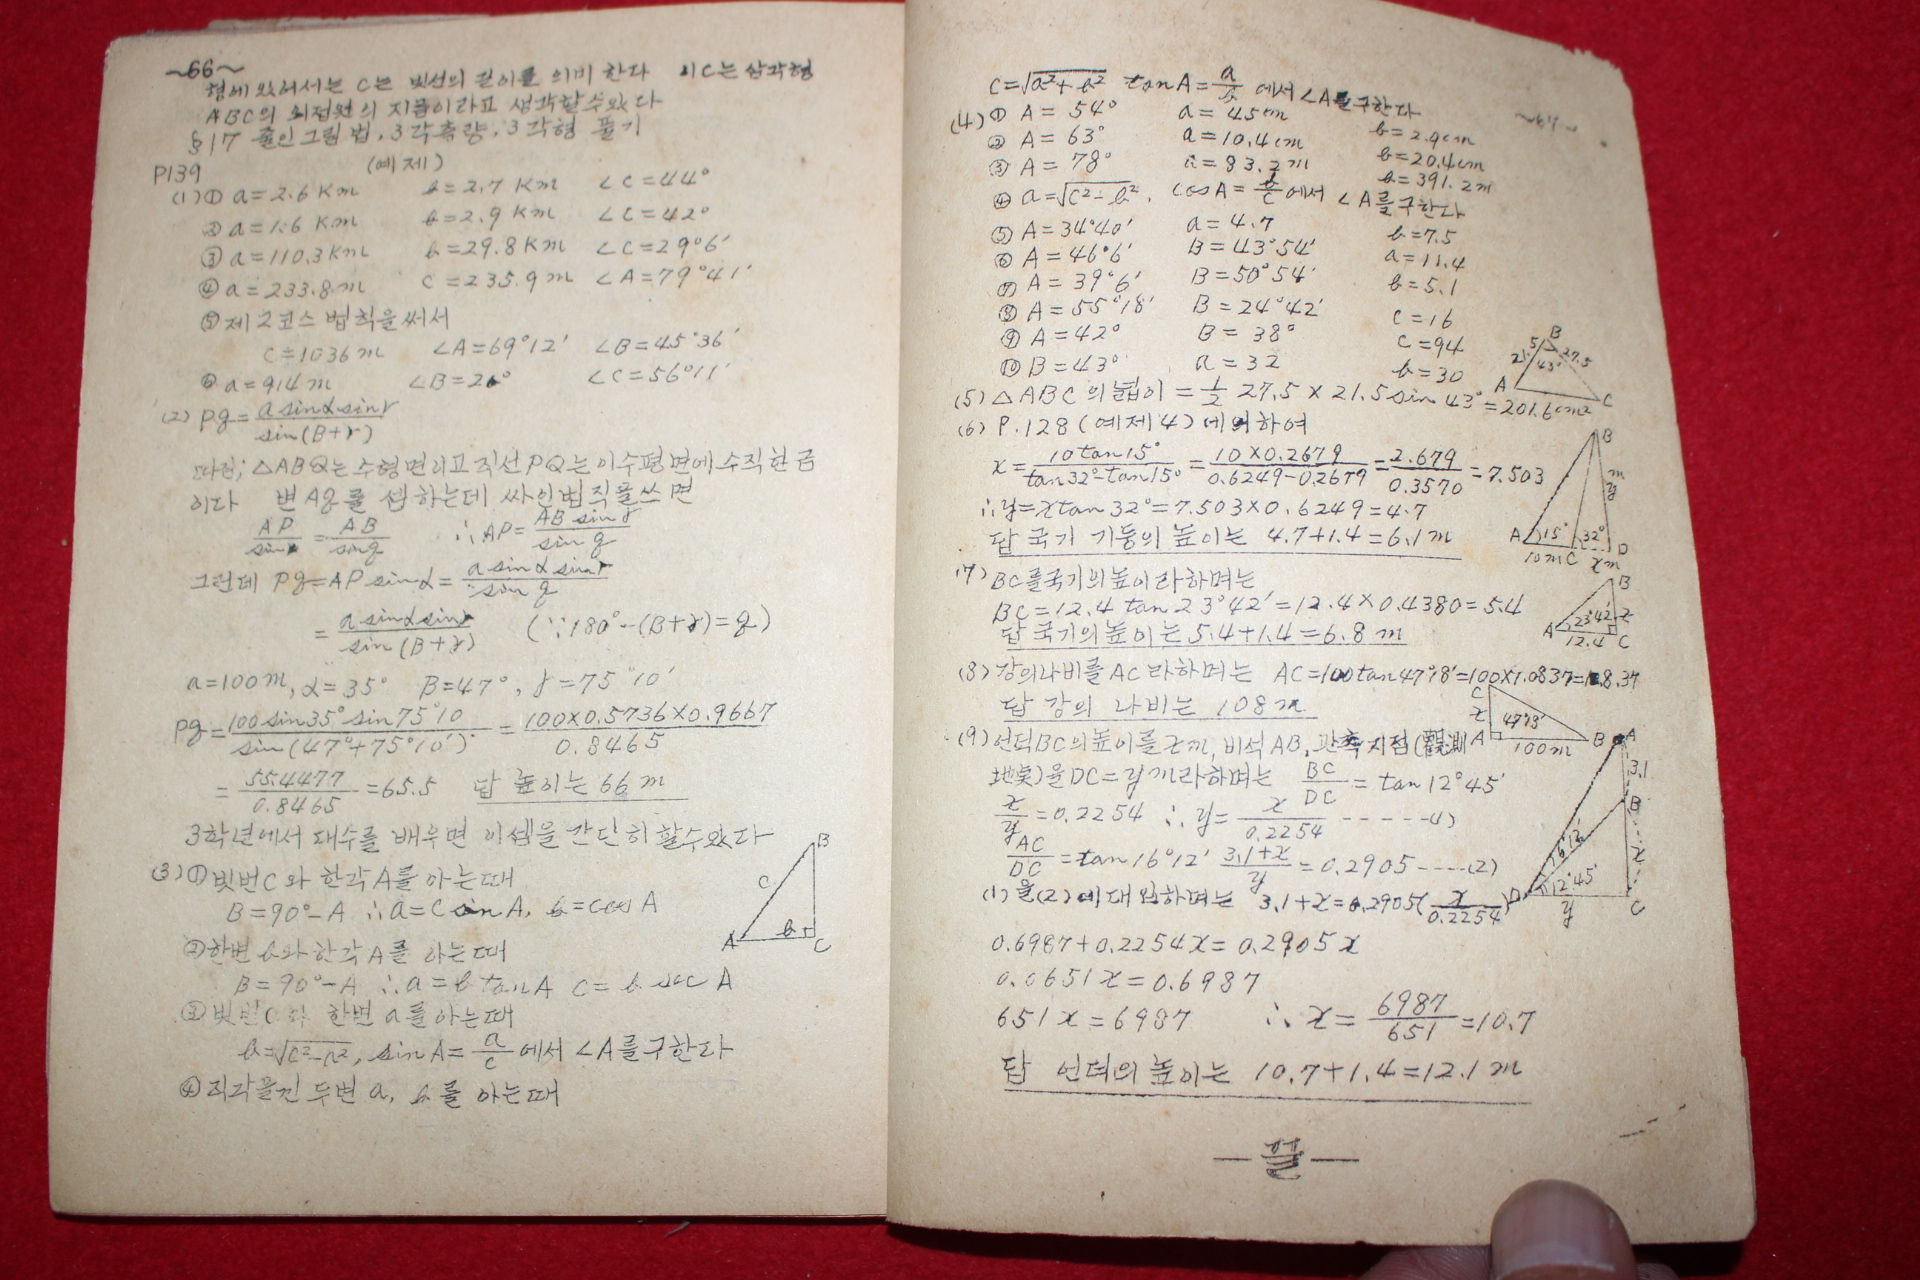 ~66~
형에 있어서는 C는 빗선의 길이를 의미 한다 2C는 삼각형
ABC의 외접원의 지름이라고 생각할수있다
§17 줄인그림 법, 3각측량, 3각형 풀기
P139 (예제)
(1) ① a=2.6 Km b=2.7 Km ∠C=44°
② a=1.6 Km b=2.9 Km ∠C=42°
③ a=110.3Km b=29.8Km ∠C=29°6′
④ a=233.8m C=235.9m ∠A=79°41′
⑤ 제2코스 법칙을써서
C=1036m ∠A=69°12′ ∠B=45°36′
⑥ a=914m ∠B=26° ∠C=56°11′
(2) Pg= a sinα sinr / sin(B+r)
따라, △ABQ는 수평면이고 직선PQ는 이수평면에 수직한 금
이다 변Ag를 셈하는데 싸인법칙을쓰면
AP/sinr = AB/sing ∴AP= AB sin r / sin g
그런데 Pg=AP sinα= a sinα sinr / sin g
= a sinα sinr / sin(B+r) (∵180°-(B+r)=g)
a=100m, α=35° B=47°, r=75°10′
Pg= 100sin35°sin75°10 / sin(47°+75°10′) = 100×0.5736×0.9667 / 0.8465
= 55.4477 / 0.8465 =65.5 답 높이는 66m
3학년에서 대수를 배우면 이셈을 간단히할수있다
(3) ① 빗변C와 한각A를 아는때
B=90°-A ∴a=C sin A, b=cos A
② 한변 b와 한각A를 아는때
B=90°-A ∴a=b tanA C=b sec A
③ 빗변C와 한변 a를 아는때
b=√c²-a², sin A= a/c 에서 ∠A를구한다
④ 직각을낀 두변 a, b를 아는때
B
C
A b C
C=√a²+b² tanA= a/b 에서 ∠A를구한다
~67~
(4) ① A=54° a=45cm b=2.9cm
② A=63° a=10.4cm b=20.4cm
③ A=78° a=83.2m b=391.2m
④ a=√c²-b², cosA= b/c 에서 ∠A를구한다
⑤ A=34°40′ a=4.7 b=7.5
⑥ A=46°6′ B=43°54′ a=11.4
⑦ A=39°6′ B=50°54′ b=5.1
⑧ A=55°18′ B=24°42′ C=16
⑨ A=42° B=38° C=94
⑩ B=43° a=32 b=30
(5) △ABC의넓이= 1/2 27.5×21.5sin 43°=201.6cm²
B 21.5 43° 27.5 A C
(6) P.128(예제4)에의하여
x= 10tan15° / tan32°-tan15° = 10×0.2679 / 0.6249-0.2679 = 2.679 / 0.3570 =7.503
∴y=xtan32°=7.503×0.6249=4.7
답 국기 기둥의 높이는 4.7+1.4=6.1m
B ym A 15° 32° D 10m C xm
(7) BC를국기의높이라하며는
BC=12.4 tan23°42′=12.4×0.4380=5.4
답 국기의높이는 5.4+1.4=6.8m
B 23°42′ x A 12.4 C
(8) 강의나비를AC라하며는 AC=100tan47°18′=100×1.0837=108.37
답 강의 나비는 108m
C x 47°18′ A 100m B
(9) 언덕BC의높이를xm, 비석AB, 관측지점(觀測
地点)을DC=ym라하며는 BC/DC = tan12°45′
x/y =0.2254 ∴y= x/0.2254 ------(1)
AC/DC =tan16°12′ 3.1+x/y =0.2905----(2)
(1)을(2)에대입하며는 3.1+x=0.2905( x/0.2254 )
0.6987+0.2254x=0.2905x
0.0651x=0.6987
651x=6987 ∴x= 6987/651 =10.7
답 언덕의높이는 10.7+1.4=12.1m
A 3.1 B x 16°12′ 12°45′ D y C
—끝—